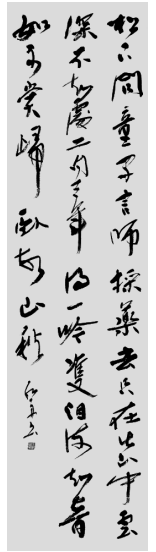 松下問童子言師採藥去只在此山中雲
深不知處二句三年得一吟雙泪流知音
如不賞歸卧故山秋